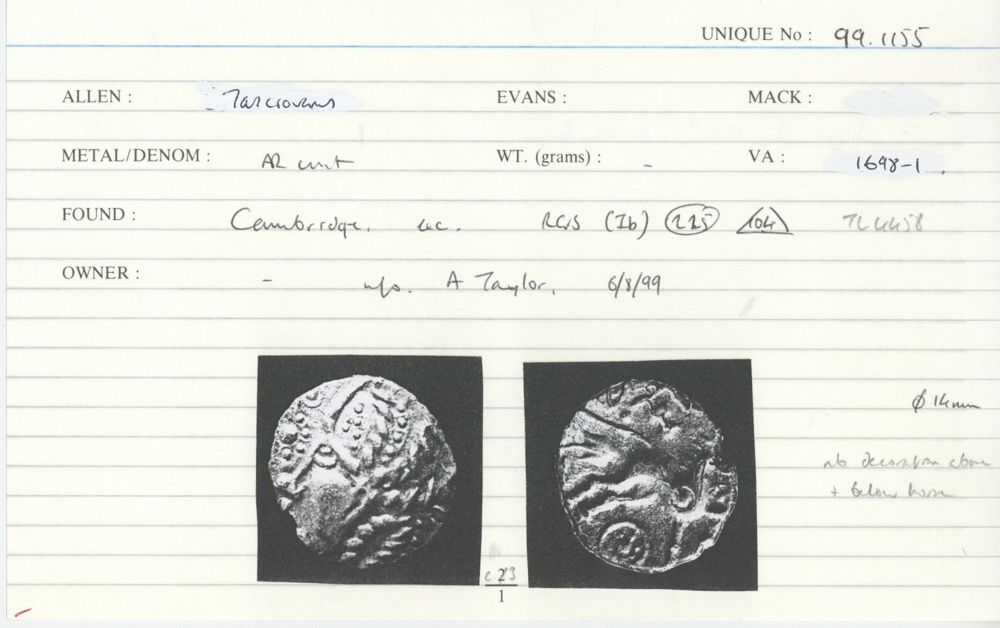 UNIQUE No : 99.1155
ALLEN : Tasciovanus EVANS : MACK :
METAL/DENOM : AR unit WT. (grams) : - VA : 1698-1
FOUND : Cambridge, (Ib) 225 104 TL4458
OWNER : - A Taylor, 6/8/99
φ 14mm
nb decoration above
+ below horse
c 2.3
1